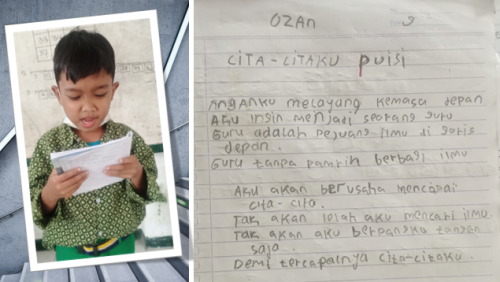 OZAN
CITA-CITAKU PUISI
Anganku melayang kemasa depan
Aku ingin menjadi seorang guru
Guru adalah pejuang ilmu di garis
depan.
Guru tanpa pamrih berbagi ilmu
Aku akan berusaha mencapai
cita-cita.
Tak akan lelah aku mencari ilmu
Tak akan aku berpangku tangan
saja.
Demi tercapainya cita-citaku.